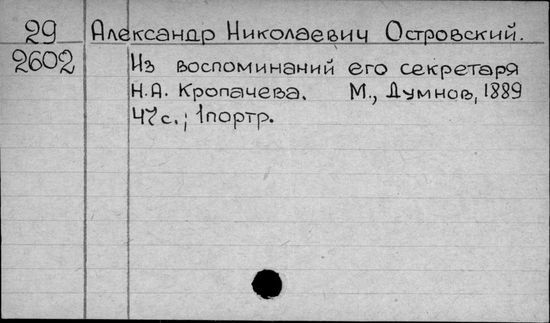 29 Александр Николаевич Островский.
2602 Из воспоминаний его секретаря
Н.А. Кропачева. М., Думнов, 1889
47с.; 1портр.